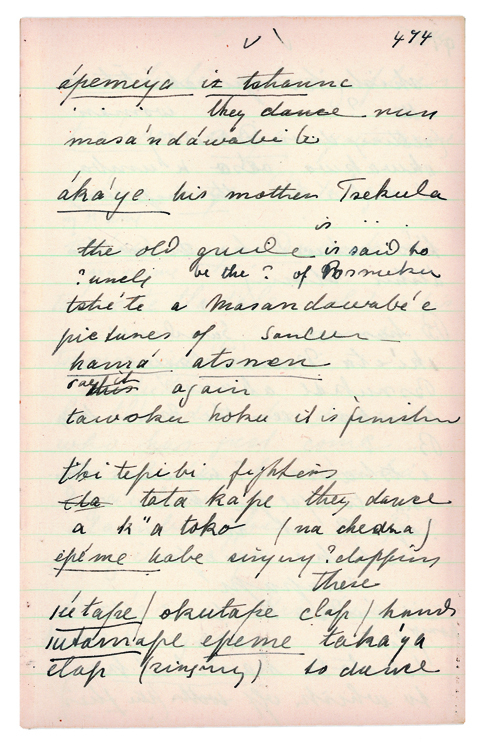 474
ápeméya iz tshaunc
they dance run
masa'ndáwabi ts
áká'ye his mother Tsekula
is
the old guide is said to
? uncle be the ? of
tshé'te a Masandawabé'e
pictures of
hamá atsnen
say it again
tawoku hoku it is finish
thi tepi bi fighters
tata kápe they dance
a k"a toko (na chedza)
epéme habe singing ? clapping
these
iétape / okutape clap / hands
epeme taka'ya
clap (singing) to dance